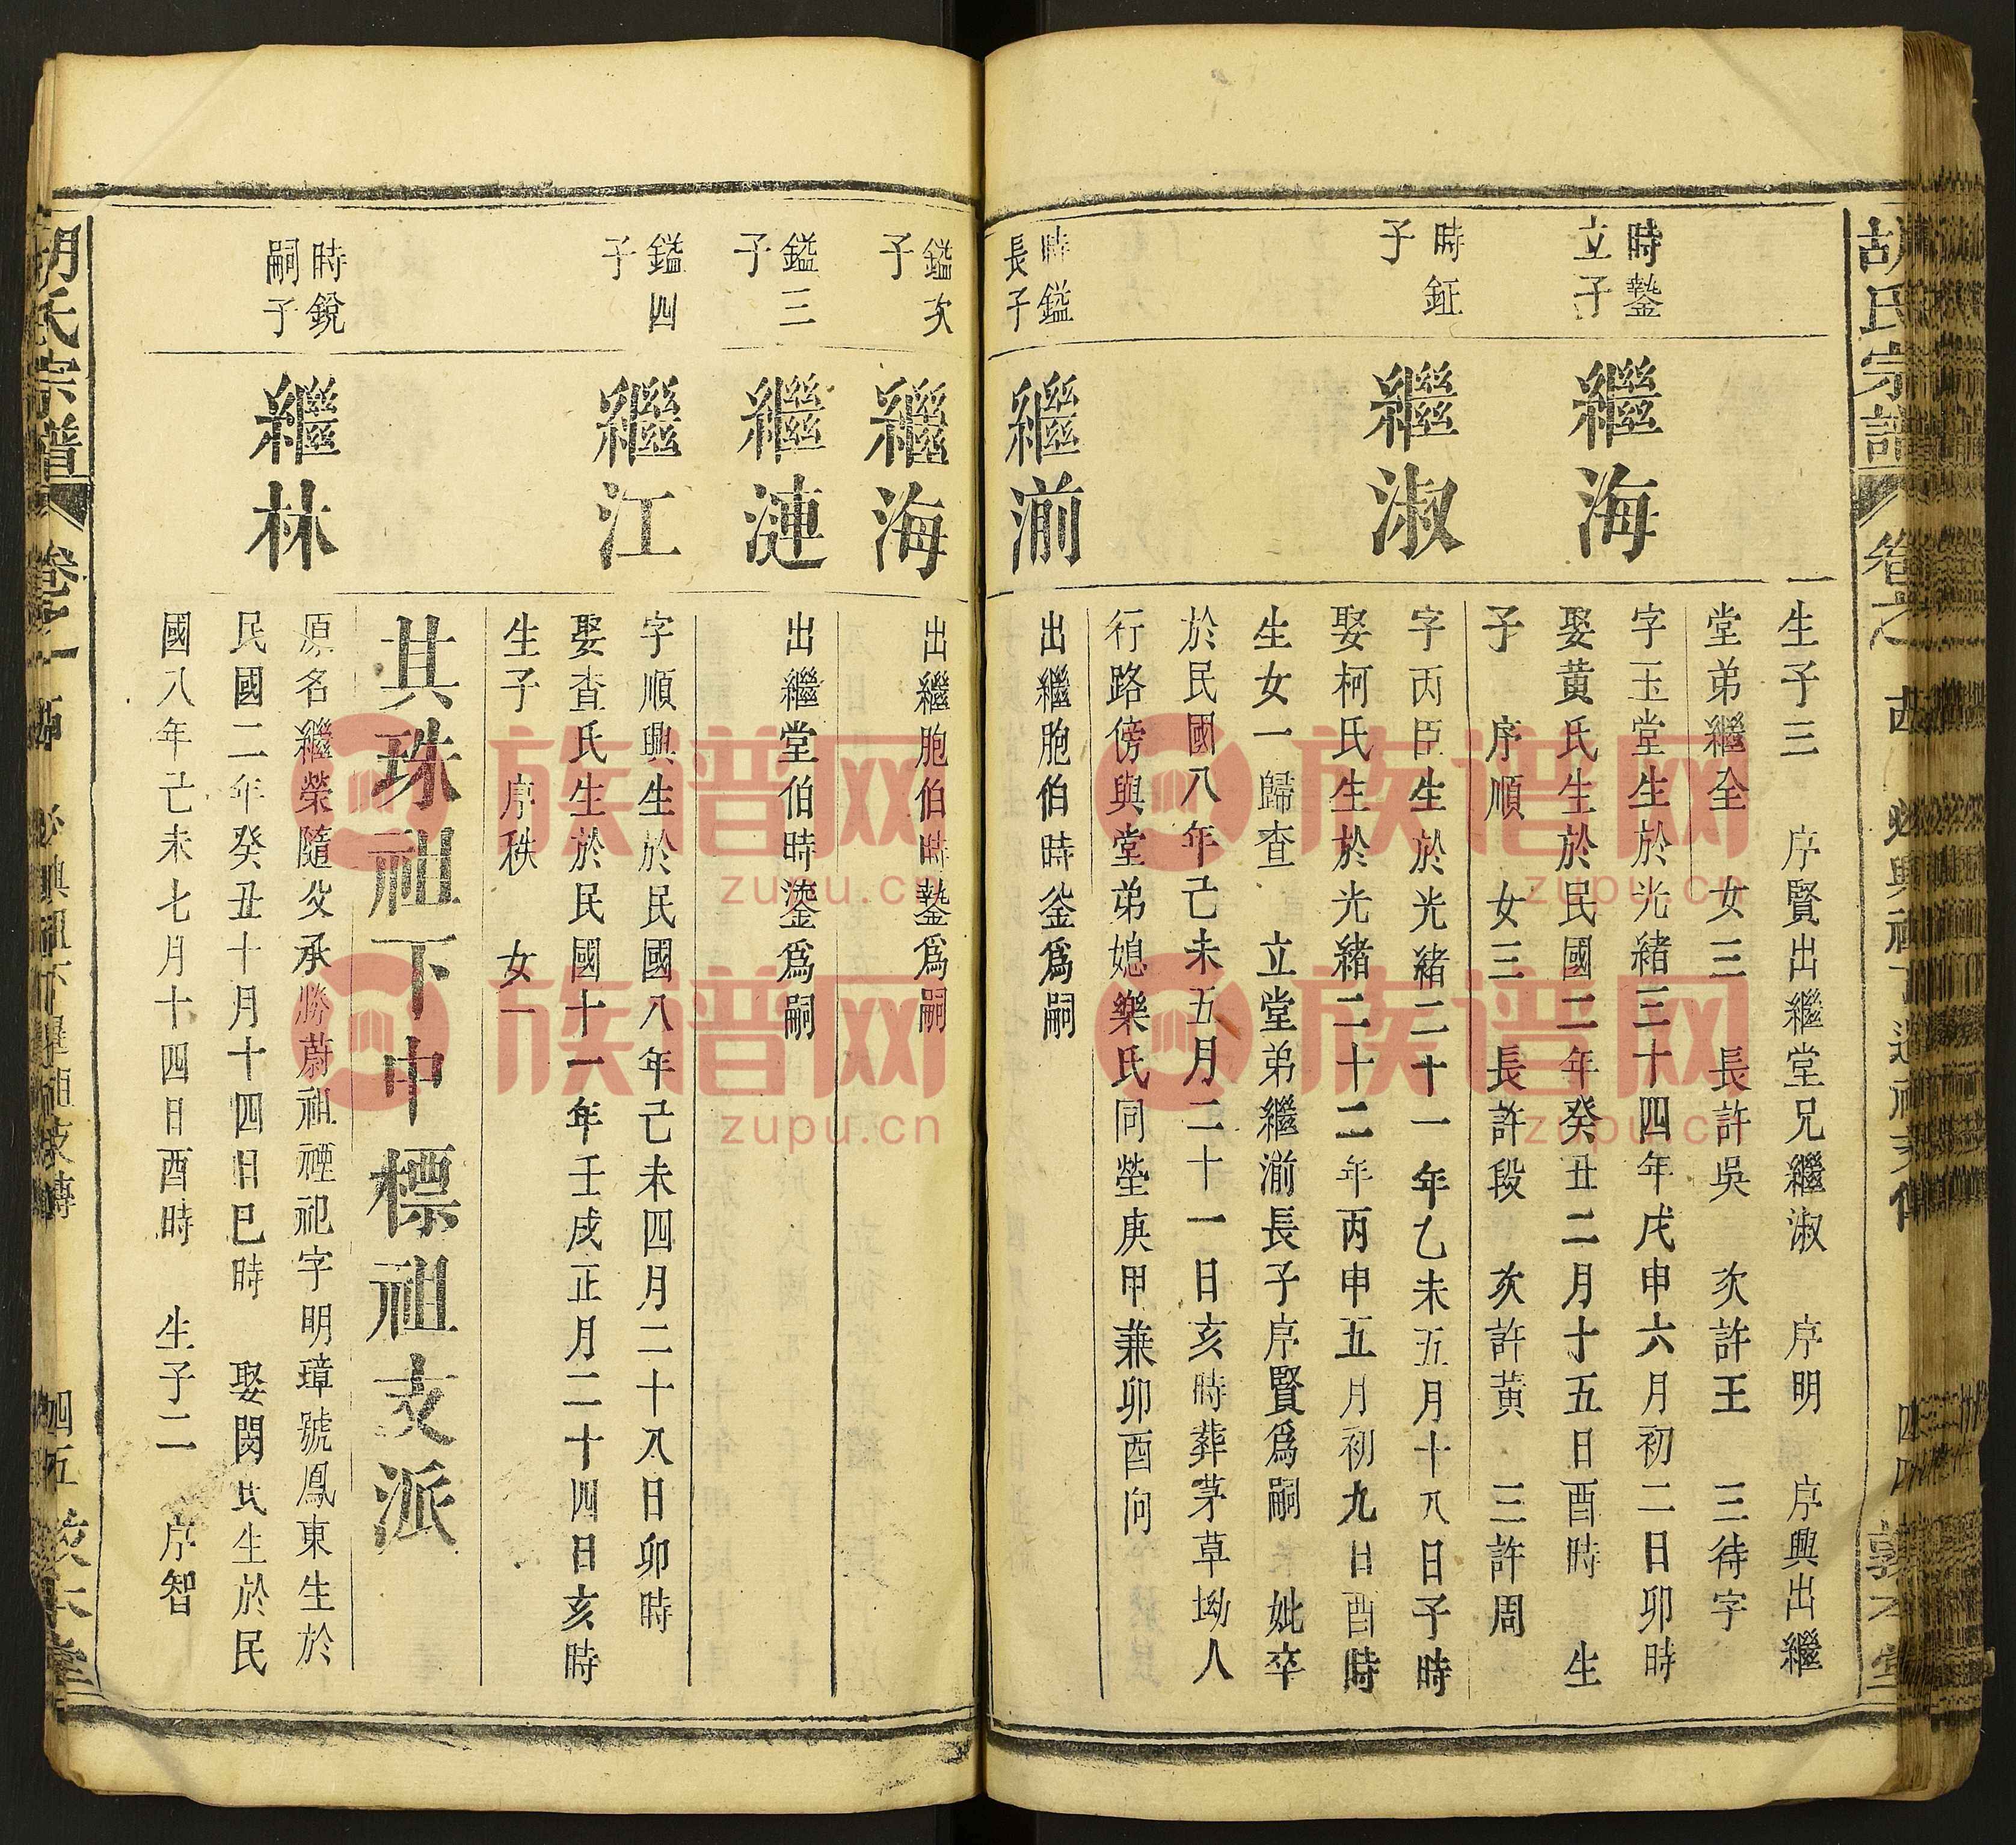 胡氏宗譜
卷之
西
四四
敦本堂
生子三 序賢出繼堂兄繼淑 序明 序興出繼
堂弟繼全 女三 長許吳 次許王 三待字
時蓺
立子
繼海
字玉堂生於光緒三十四年戊申六月初二日卯時
娶黃氏生於民國二年癸丑二月十五日酉時 生
子 序順 女三 長許段 次許黃 三許周
時鉦
子
繼淑
字丙臣生於光緒二十一年乙未五月十八日子時
娶柯氏生於光緒二十二年丙申五月初九日酉時
生女一歸查 立堂弟繼湔長子序賢爲嗣 妣卒
於民國八年己未五月二十一日亥時葬茅草坳人
行路傍與堂弟媳樂氏同塋庚甲兼卯酉向
時鎰
長子
繼湔
出繼胞伯時崟爲嗣
鎰次
子
繼海
出繼胞伯時蓺爲嗣
鎰三
子
繼漣
出繼堂伯時鎏爲嗣
鎰四
子
繼江
字順興生於民國八年己未四月二十八日卯時
娶查氏生於民國十一年壬戌正月二十四日亥時
生子 序秩 女一
其珠祖下中標祖支派
時銳
嗣子
繼林
原名繼榮隨父承勝蔚祖禋祀字明璋號鳳東生於
民國二年癸丑十月十四日巳時 娶閔氏生於民
國八年己未七月十四日酉時 生子二 序智
胡氏宗譜
必興祖下
四五
族谱网
zupu.cn
族谱网
zupu.cn
族谱网
zupu.cn
族谱网
zupu.cn